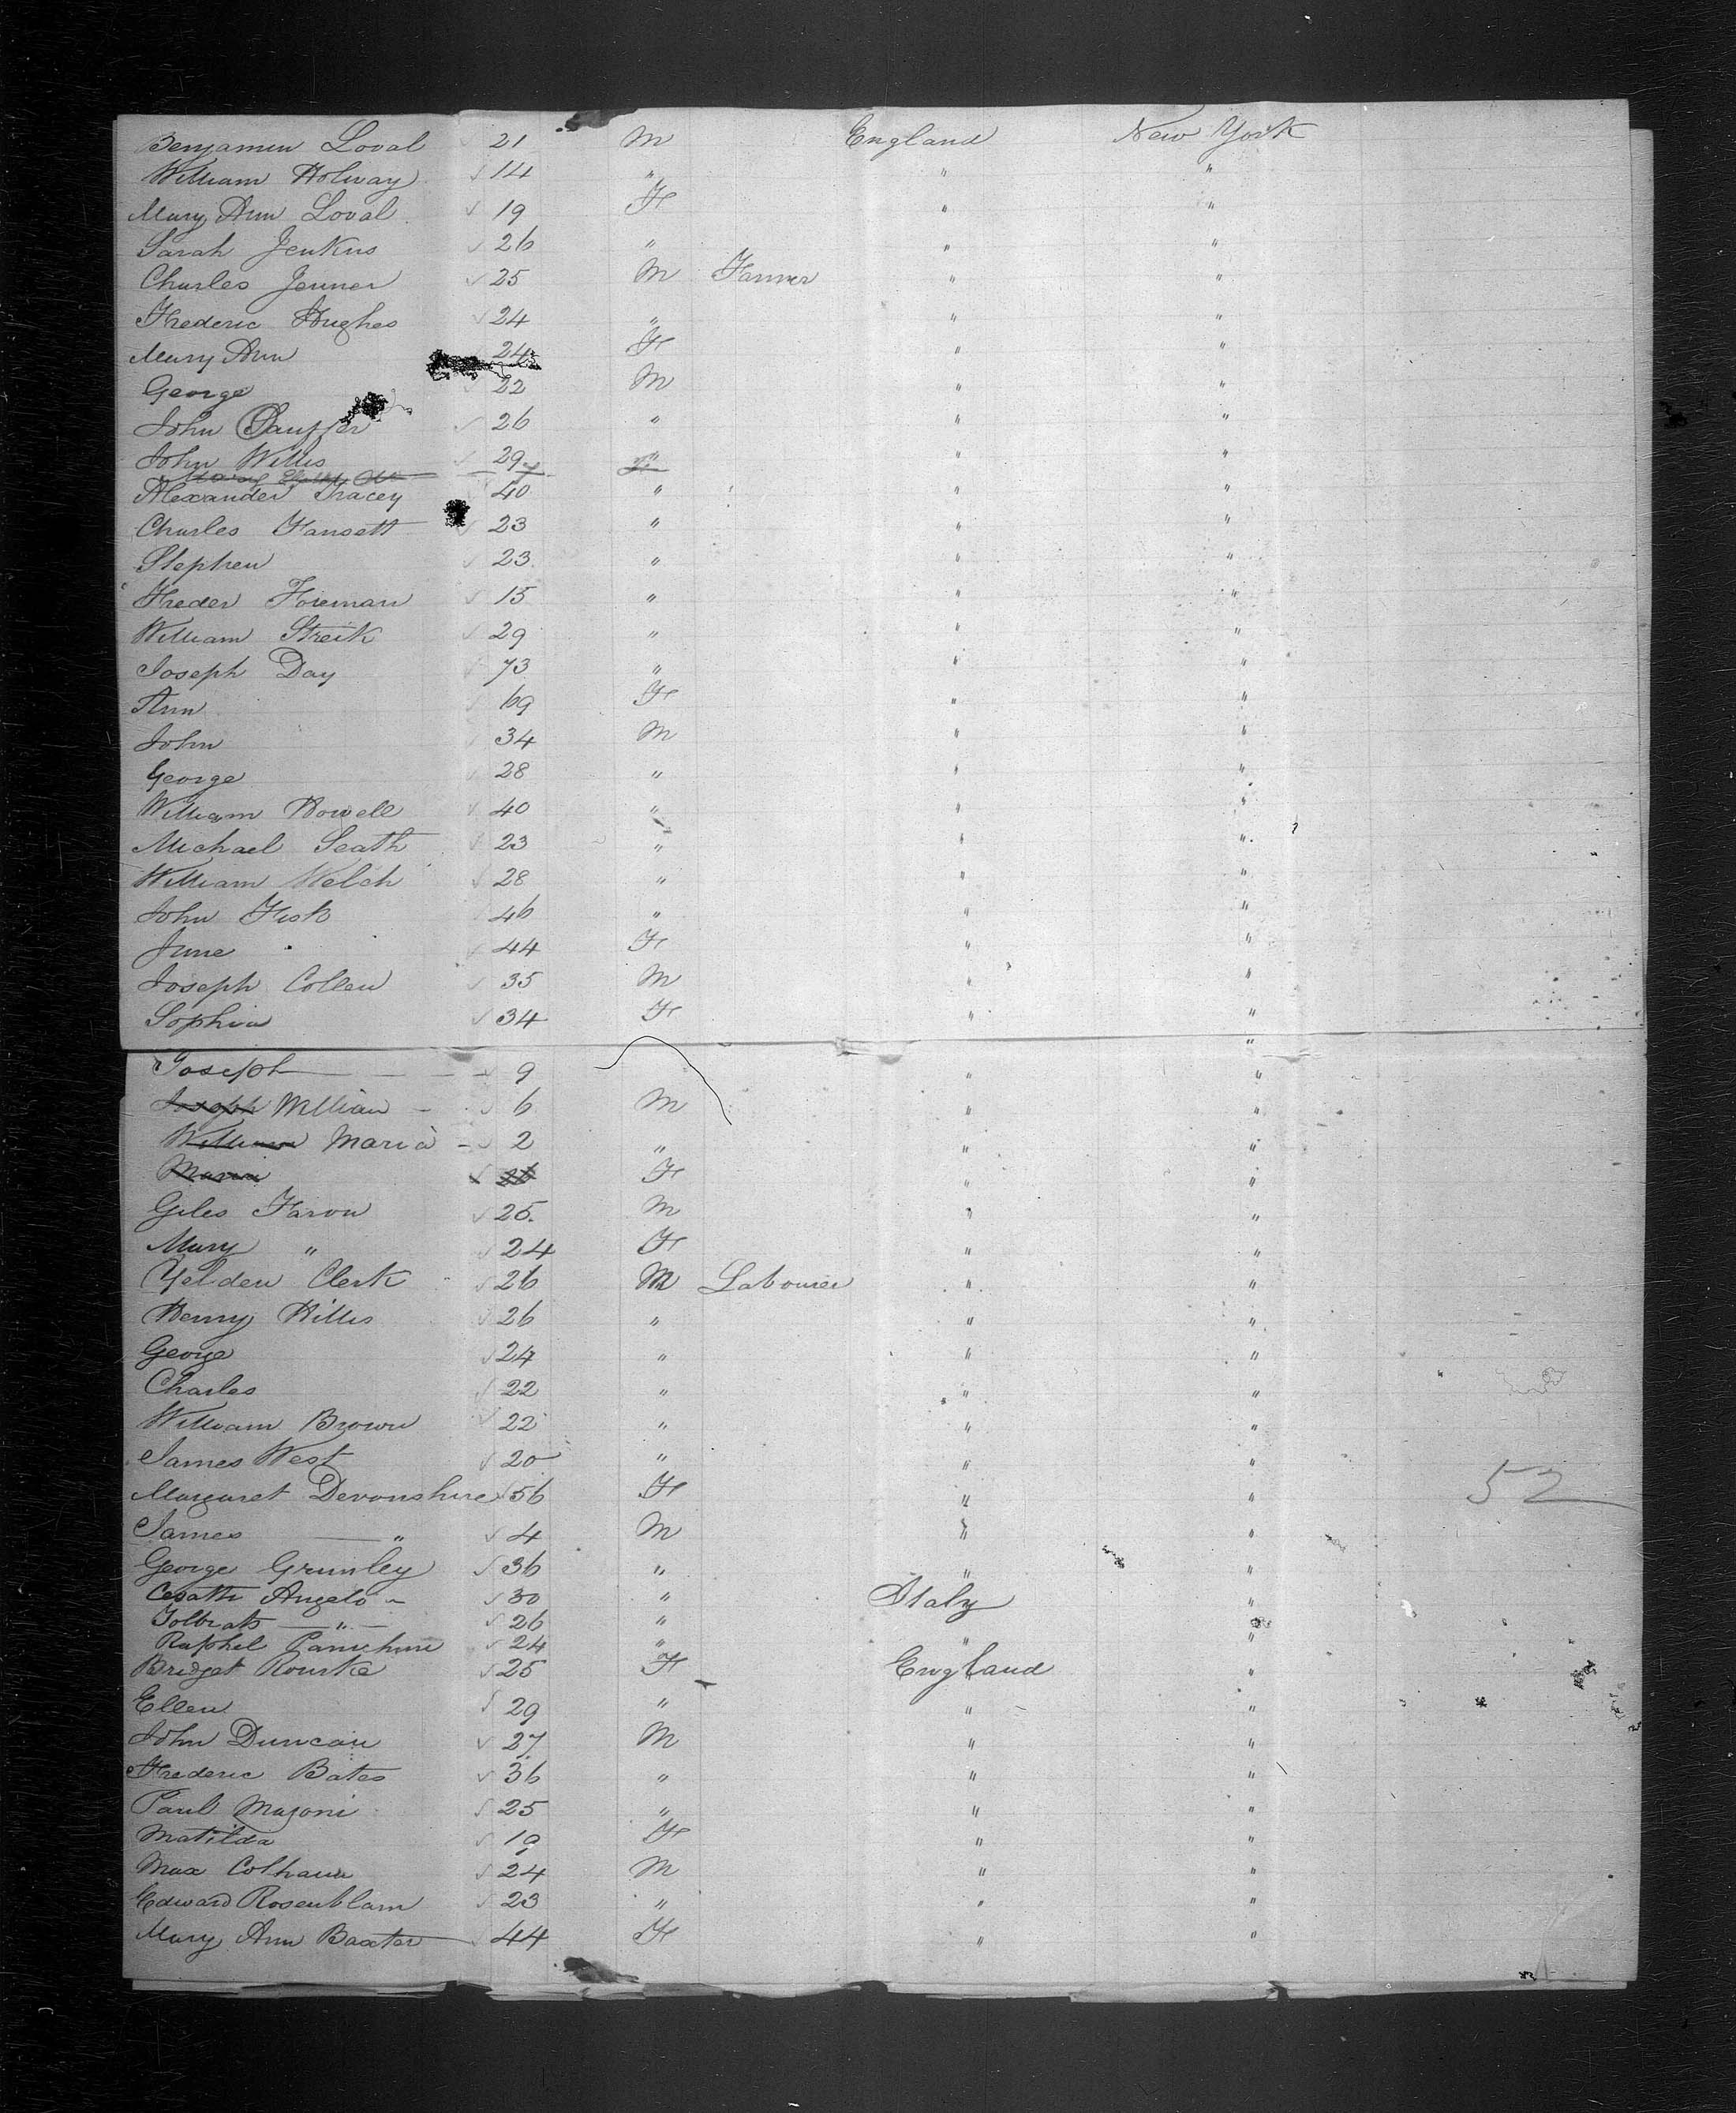 Benjamin Loval 21 M England New York
William Holway √ 14 " " "
Mary Ann Loval √ 19 F " "
Sarah Jenkins √ 26 " " "
Charles Jenner √ 25 M Farmer " "
Frederic Hughes √ 24 " " "
Mary Ann 24 F " "
George √ 22 M " "
John √ 26 " " "
John Willis √ 29 " " "
Alexander Tracey 40 " " "
Charles Fansett √ 23 " " "
Stephen √ 23 " " "
Freder Foreman √ 15 " " "
William Streik √ 29 " " "
Joseph Day √ 73 " " "
Ann √ 69 F " "
John √ 34 M " "
George √ 28 " " "
William Howell √ 40 " " "
Michael Seath √ 23 " " "
William Welch √ 28 " " "
John Fisk √ 46 " " "
June √ 44 F " "
Joseph Collen √ 35 M " "
Sophia √ 34 F " "
"
Joseph √ 9 " "
Joseph William √ 6 M " "
William Maria √ 2 " " "
Maria √ F " "
Giles Faron √ 25. M " "
Mary " √ 24 F " "
Yelden Clerk √ 26 M Labourer " "
Henry Hills √ 26 " " "
George √ 24 " " "
Charles √ 22 " " "
William Brown √ 22 " " "
James West √ 20 " " "
Margaret Devonshire √ 56 F " " 52
James — " √ 4 M " "
George Grumley √ 36 " " "
Cesatti Angelo √ 30 " Italy "
— " — √ 26 " "
Raphel √ 24 " " "
Bridget Rourke √ 25 F England "
Ellen √ 29 " " "
John Duncan √ 27 M " "
Frederic Bates √ 36 " " "
Paul Mazoni √ 25 " " "
Matilda √ 19 F " "
Max Colhaun √ 24 M " "
Edward Rosenblam √ 23 " " "
Mary Ann Baxter √ 44 F " "